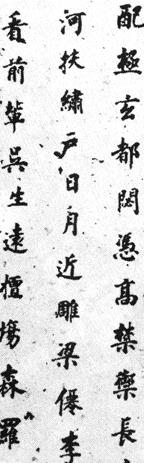 配極玄都閟憑高禁禦長
河扶繡戶日月近雕梁僊李
看前輩吳生遠擅塲森羅